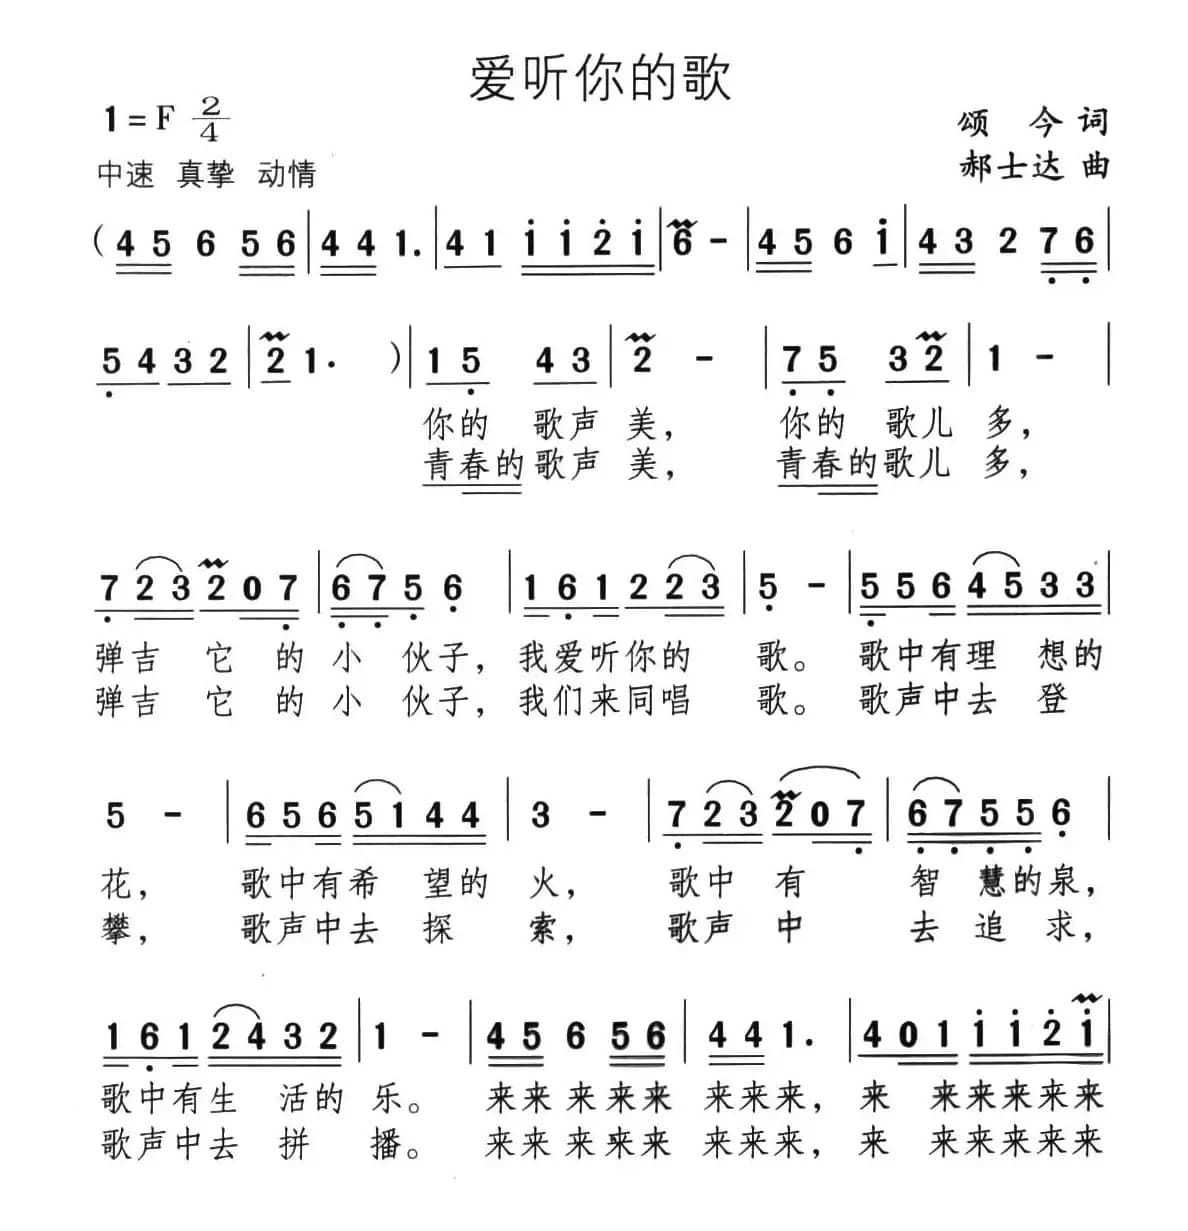 爱听你的歌
1=F 2/4
颂 今 词
中速 真挚 动情
郝士达 曲
( 4 5 6 5 6 | 4 4 1. | 4 1 1 1 2 1 | 6 - | 4 5 6 1 | 4 3 2 7 6 |
5 4 3 2 | 2 1. ) | 1 5 4 3 | 2 - | 7 5 3 2 | 1 - |
你的 歌声 美, 你的 歌儿 多,
青春的歌声 美, 青春的歌儿 多,
7 2 3 2 0 7 | 6 7 5 6 | 1 6 1 2 2 3 | 5 - | 5 5 6 4 5 3 3 |
弹吉 它 的 小 伙子, 我爱听你的 歌。 歌中有理 想的
弹吉 它 的 小 伙子, 我们来同唱 歌。 歌声中去 登
5 - | 6 5 6 5 1 4 4 | 3 - | 7 2 3 2 0 7 | 6 7 5 5 6 |
花, 歌中有希 望的 火, 歌中 有 智 慧的泉,
攀, 歌声中去 探 索, 歌声 中 去 追 求,
1 6 1 2 4 3 2 | 1 - | 4 5 6 5 6 | 4 4 1. | 4 0 1 1 1 2 1 |
歌中有生 活的 乐。 来来 来 来来 来来来, 来 来来来来来
歌声中去 拼 播。 来来 来 来来 来来来, 来 来来来来来